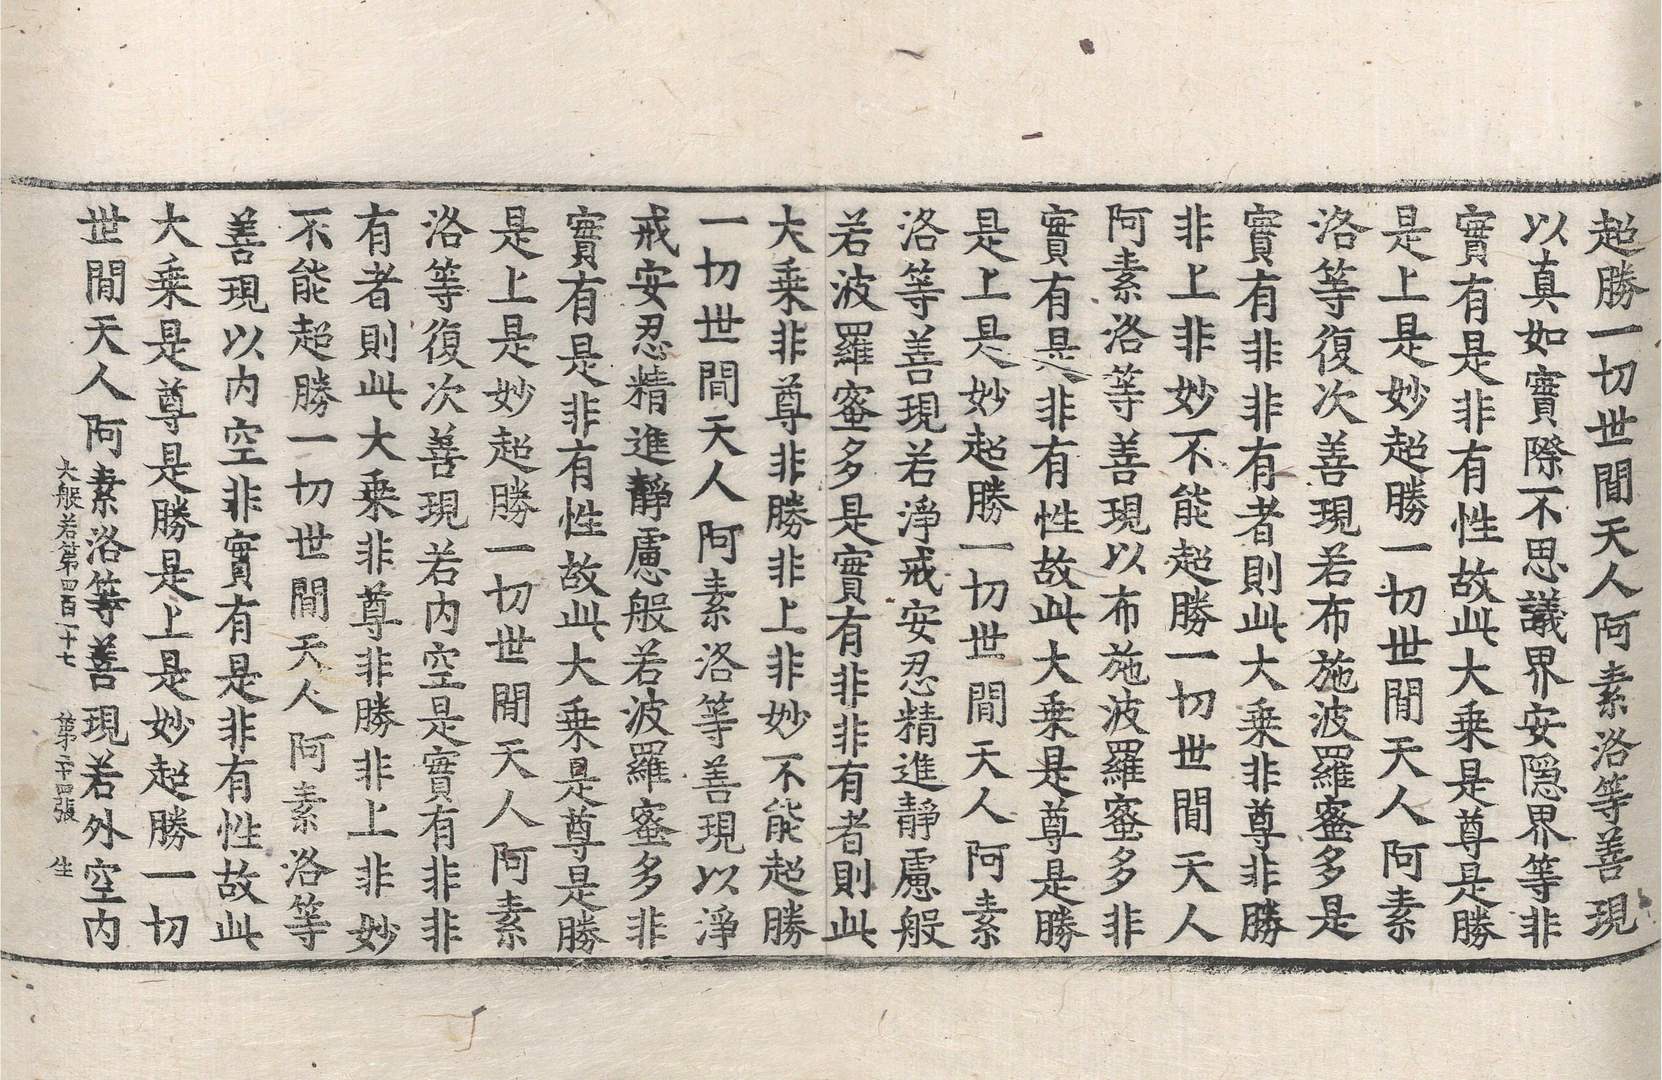 超勝一切世間天人阿素洛等善現
以真如實際不思議界安隱界等非
實有是非有性故此大乗是尊是勝
是上是妙超勝一切世間天人阿素
洛等復次善現若布施波羅蜜多是
實有非非有者則此大乗非尊非勝
非上非妙不能超勝一切世間天人
阿素洛等善現以布施波羅蜜多非
實有是非有性故此大乗是尊是勝
是上是妙超勝一切世間天人阿素
洛等善現若淨戒安忍精進靜慮般
若波羅蜜多是實有非非有者則此
大乗非尊非勝非上非妙不能超勝
一切世間天人阿素洛等善現以淨
戒安忍精進靜慮般若波羅蜜多非
實有是非有性故此大乗是尊是勝
是上是妙超勝一切世間天人阿素
洛等復次善現若內空是實有非非
有者則此大乗非尊非勝非上非妙
不能超勝一切世間天人阿素洛等
善現以內空非實有是非有性故此
大乗是尊是勝是上是妙超勝一切
世間天人阿素洛等善現若外空內
大般若第四百一十七 第二十四張 生